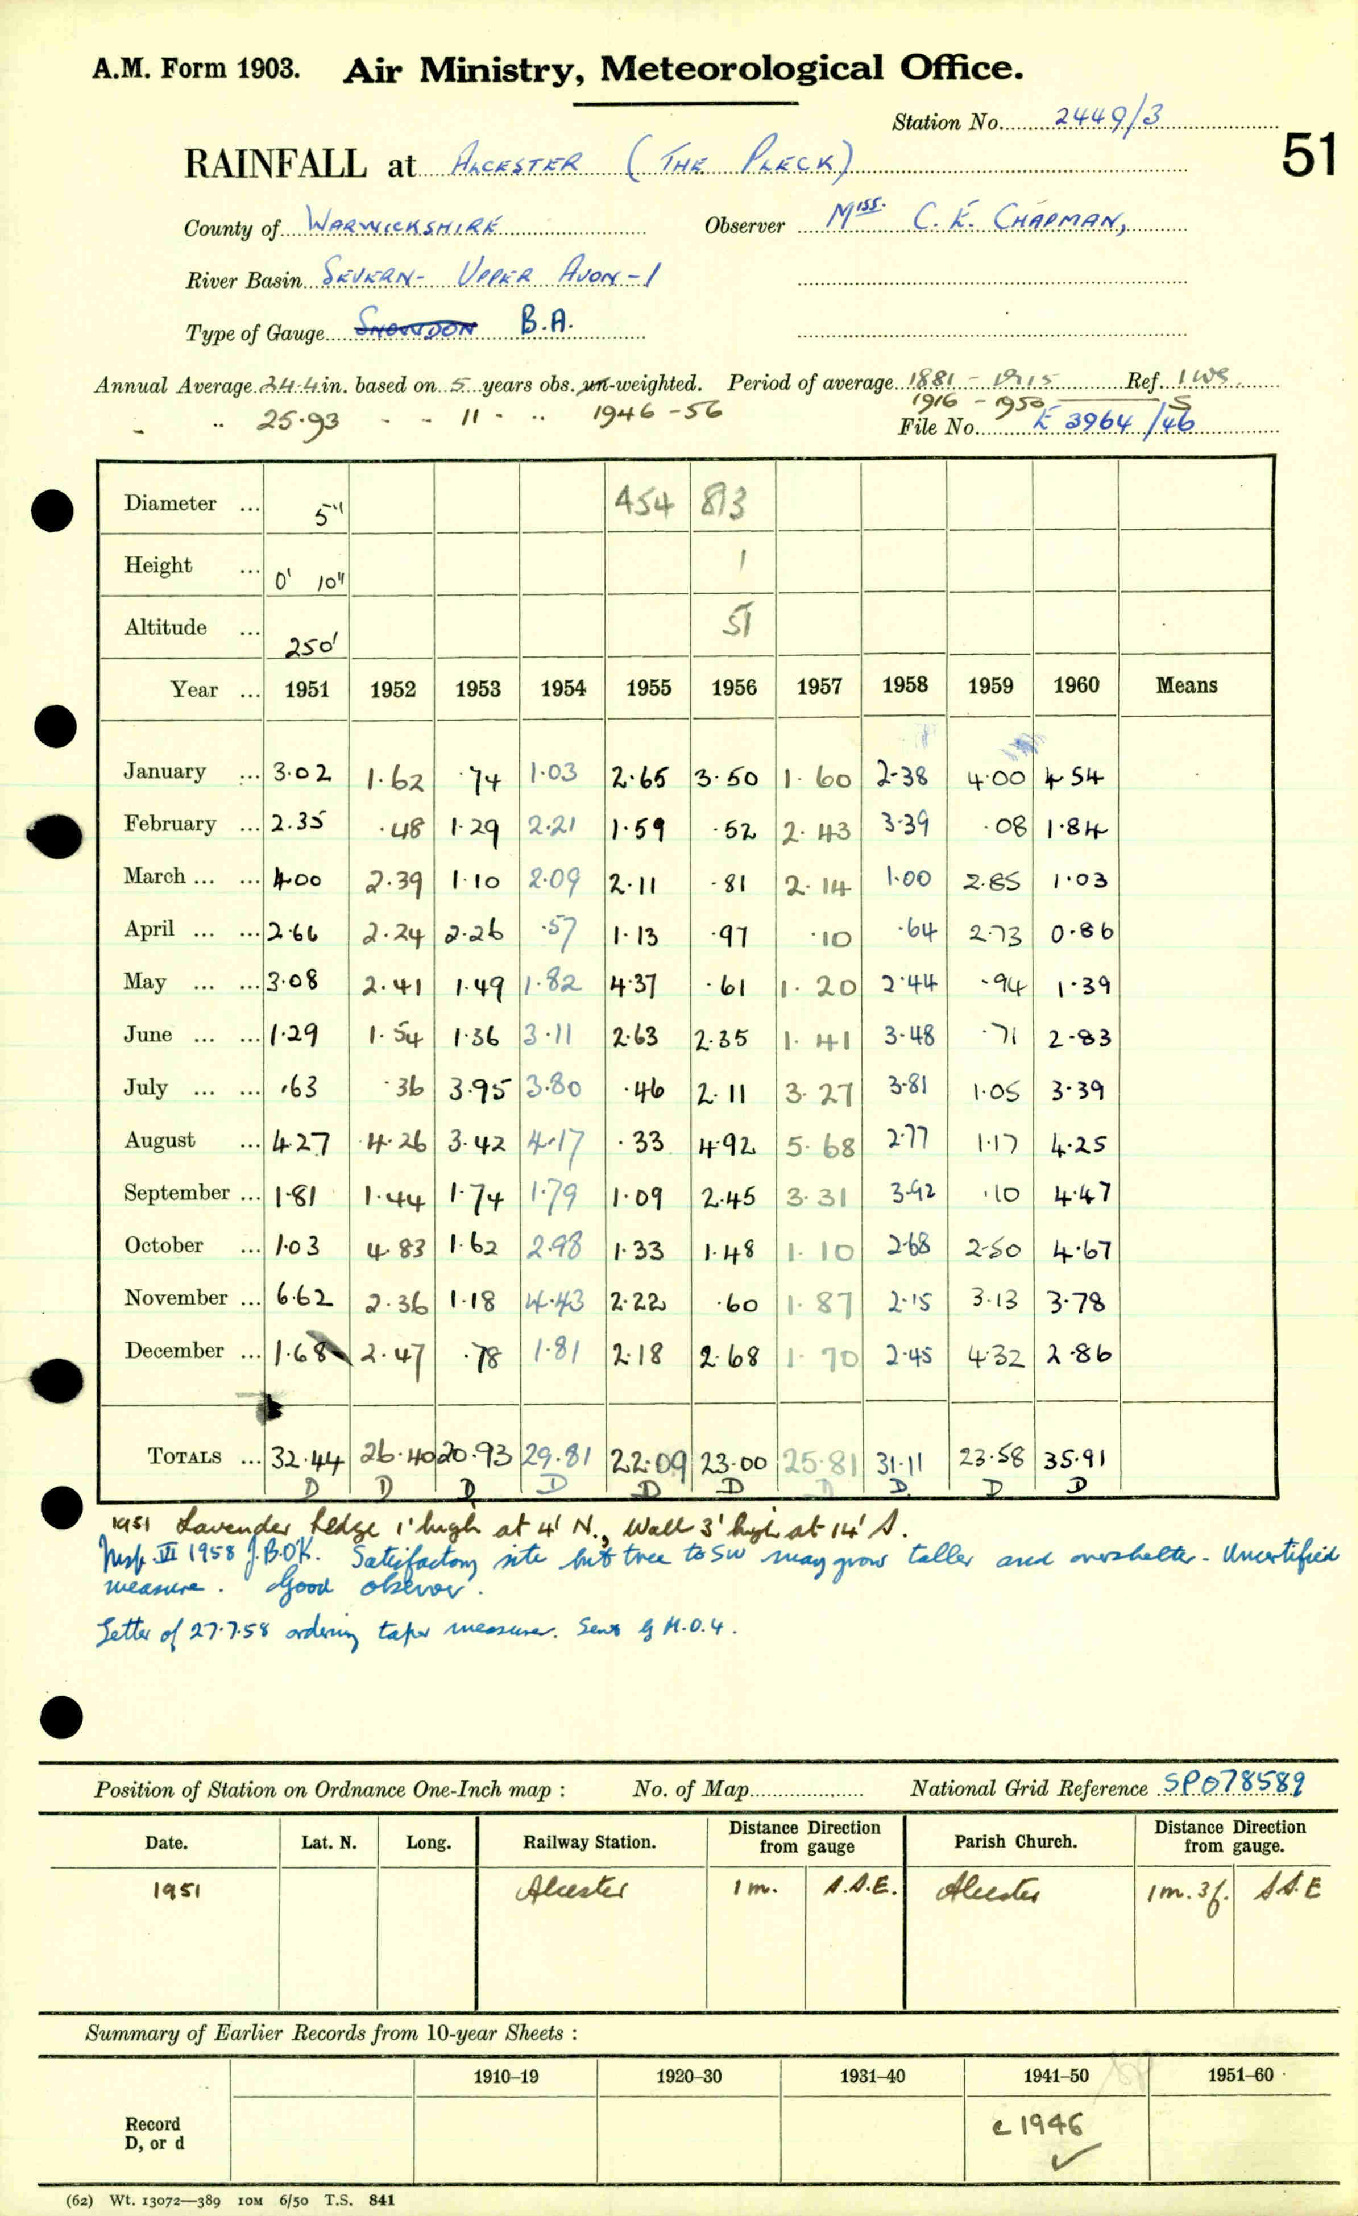 A.M. Form 1903. Air Ministry, Meteorological Office.
Station No. 2449/3
51
RAINFALL at ALCESTER (THE PLECK)
County of WARWICKSHIRE Observer MISS. C. E. CHAPMAN,
River Basin SEVERN- UPPER AVON-1
Type of Gauge SNOWDON B.A.
Annual Average 24.4 in. based on 5 years obs. un-weighted. Period of average 1881 - 1915 Ref.
1916 - 1950
- .. 25.93 - - 11 - .. 1946-56 File No. E 3964/46
Diameter ... 5" 454 813
Height ... 0' 10" 1
Altitude ... 250' 51
Year ... 1951 1952 1953 1954 1955 1956 1957 1958 1959 1960 Means
January ... 3.02 1.62 .74 1.03 2.65 3.50 1.60 2.38 4.00 4.54
February ... 2.35 .48 1.29 2.21 1.59 .52 2.43 3.39 .08 1.84
March ... ... 4.00 2.39 1.10 2.09 2.11 .81 2.14 1.00 2.85 1.03
April ... ... 2.66 2.24 2.26 .57 1.13 .97 .10 .64 2.73 0.86
May ... ... 3.08 2.41 1.49 1.82 4.37 .61 1.20 2.44 .94 1.39
June ... ... 1.29 1.54 1.36 3.11 2.63 2.35 1.41 3.48 .71 2.83
July ... ... .63 .36 3.95 3.80 .46 2.11 3.27 3.81 1.05 3.39
August ... 4.27 4.26 3.42 4.17 .33 4.92 5.68 2.77 1.17 4.25
September ... 1.81 1.44 1.74 1.79 1.09 2.45 3.31 3.92 .10 4.47
October ... 1.03 4.83 1.62 2.98 1.33 1.48 1.10 2.68 2.50 4.67
November ... 6.62 2.36 1.18 4.43 2.22 .60 1.87 2.15 3.13 3.78
December ... 1.68 2.47 .78 1.81 2.18 2.68 1.70 2.45 4.32 2.86
TOTALS ... 32.44 26.40 20.93 29.81 22.09 23.00 25.81 31.11 23.58 35.91
D D D D D D D D D D
1951 Lavender hedge 1' high at 4' N., Wall 3' high at 14' S.
Insp. VI 1958 J.B.O'K. Satisfactory site but tree to SW may grow taller and overshelter - Uncertified
measure. Good observer.
Letter of 27.7.58 ordering taper measure. Sent by M.O.4.
Position of Station on Ordnance One-Inch map : No. of Map National Grid Reference SP078589
Date. Lat. N. Long. Railway Station. Distance from Direction gauge Parish Church. Distance from Direction gauge.
1951 Alcester 1 m. S.S.E. Alcester 1 m. 3f. S.S.E
Summary of Earlier Records from 10-year Sheets :
1910–19 1920–30 1931–40 1941–50 1951–60
Record
D, or d
c 1946
(62) Wt. 13072—389 10M 6/50 T.S. 841